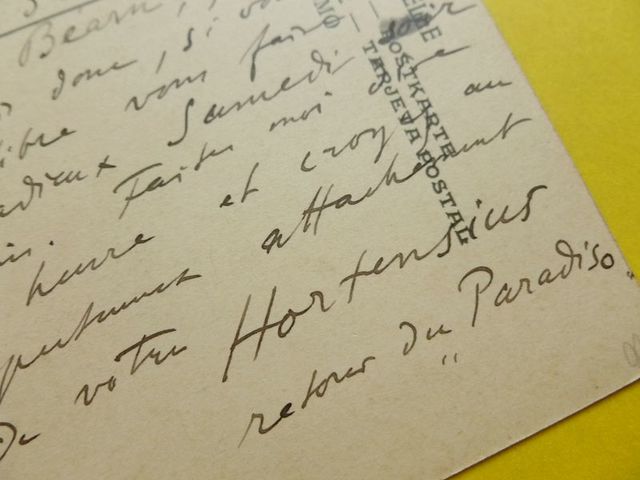 Béarn,
donc, si vo
libre vous fair
adieux Samedi soir
Faites moi dire
heure et croyez au
attachement
De votre Hortensius
retour du "Paradiso"
POSTKARTE
TARJETA POSTAL